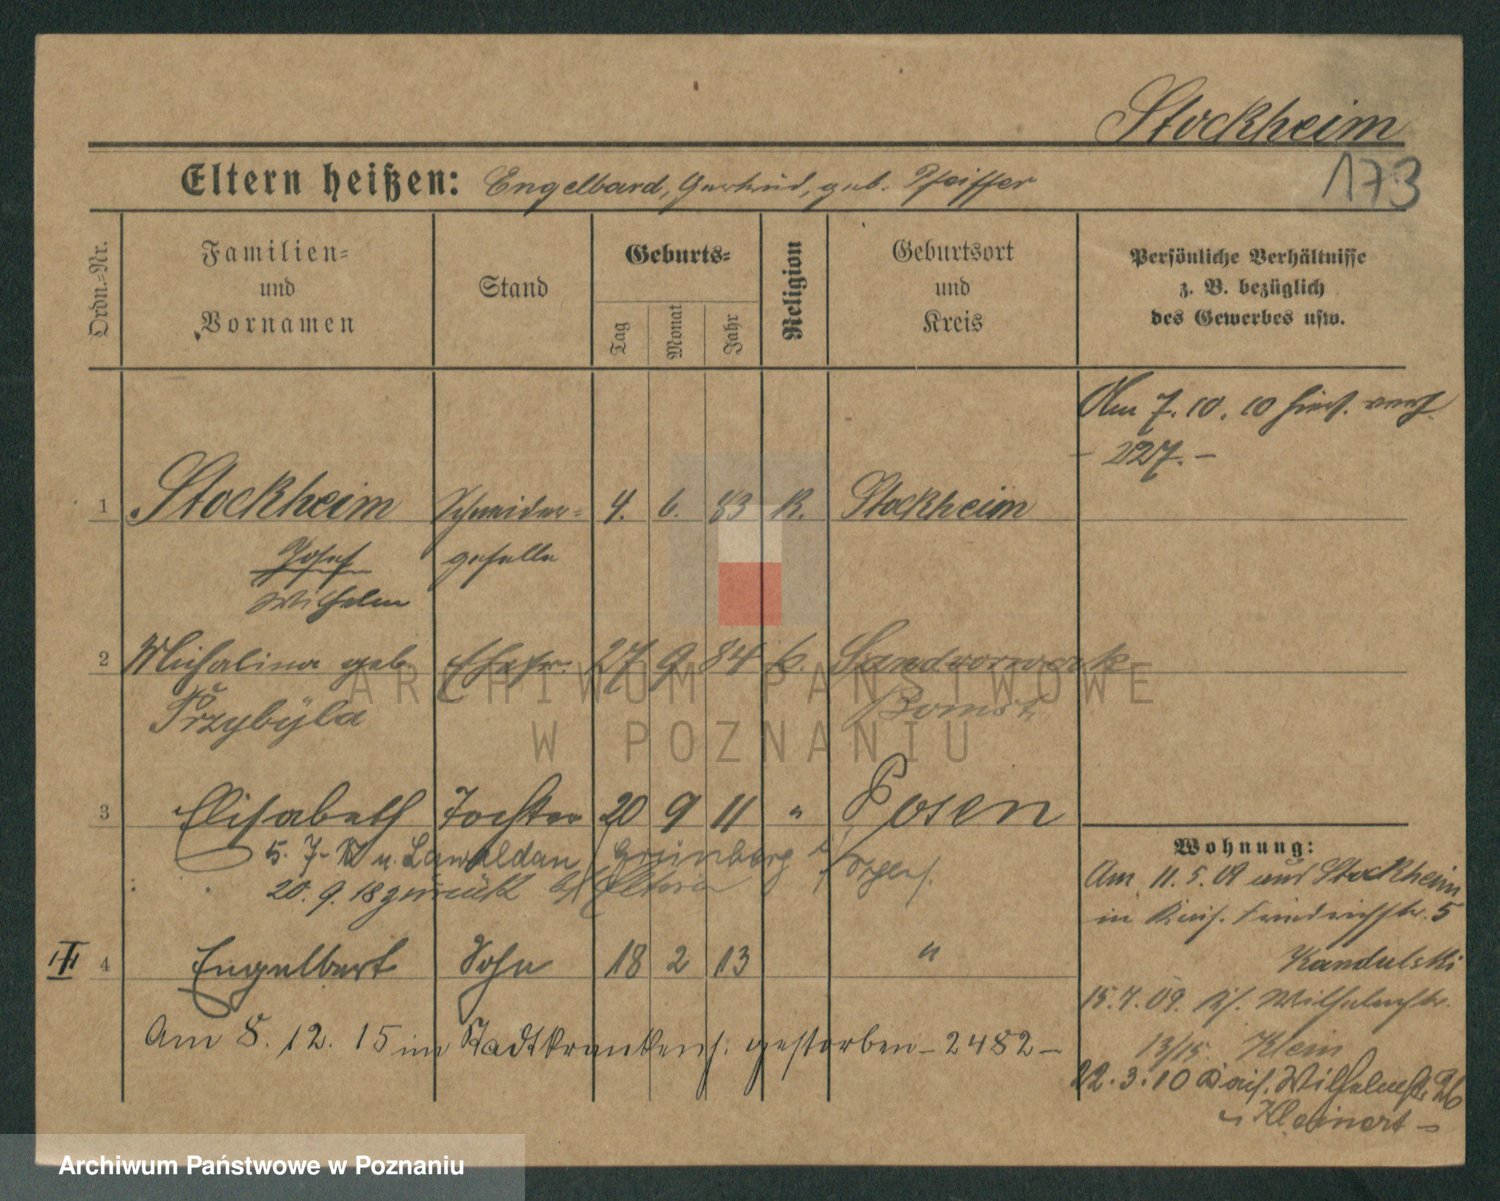 Stockheim
173
Eltern heißen: Engelbard, Gertrud, geb. Pfeiffer
Ordn.-Nr.
Familien-
und
Vornamen
Stand
Geburts-
Tag
Monat
Jahr
Religion
Geburtsort
und
Kreis
Persönliche Verhältnisse
z. B. bezüglich
des Gewerbes usw.
Am 7. 10. 10 hier. verh.
- 227. -
1 Stockheim Schneider- 4. 6. 83 K. Stockheim
Josef geselle
Wilhelm
2 Michalina geb. Ehefr. 27 9 84 k. Sandvorwerk
Przybyla Bomst
3 Elisabeth Tochter 20 9 11 " Posen
5. 7. n. Lawaldau Grünberg
20. 9. 18 zurück Eltern
4 Engelbert Sohn 18 2 13 "
Am 8. 12. 15 im Stadtkrankenh. gestorben - 2482 -
Wohnung:
Am 11. 5. 09 aus Stockheim
in Kais. Friedrichstr. 5
Kandulski
15. 7. 09. Wilhelmstr.
13/15. Klein
22. 3. 10 Kais. Wilhelmstr. 26
- Kleinert -
ARCHIWUM PAŃSTWOWE
W POZNANIU
Archiwum Państwowe w Poznaniu